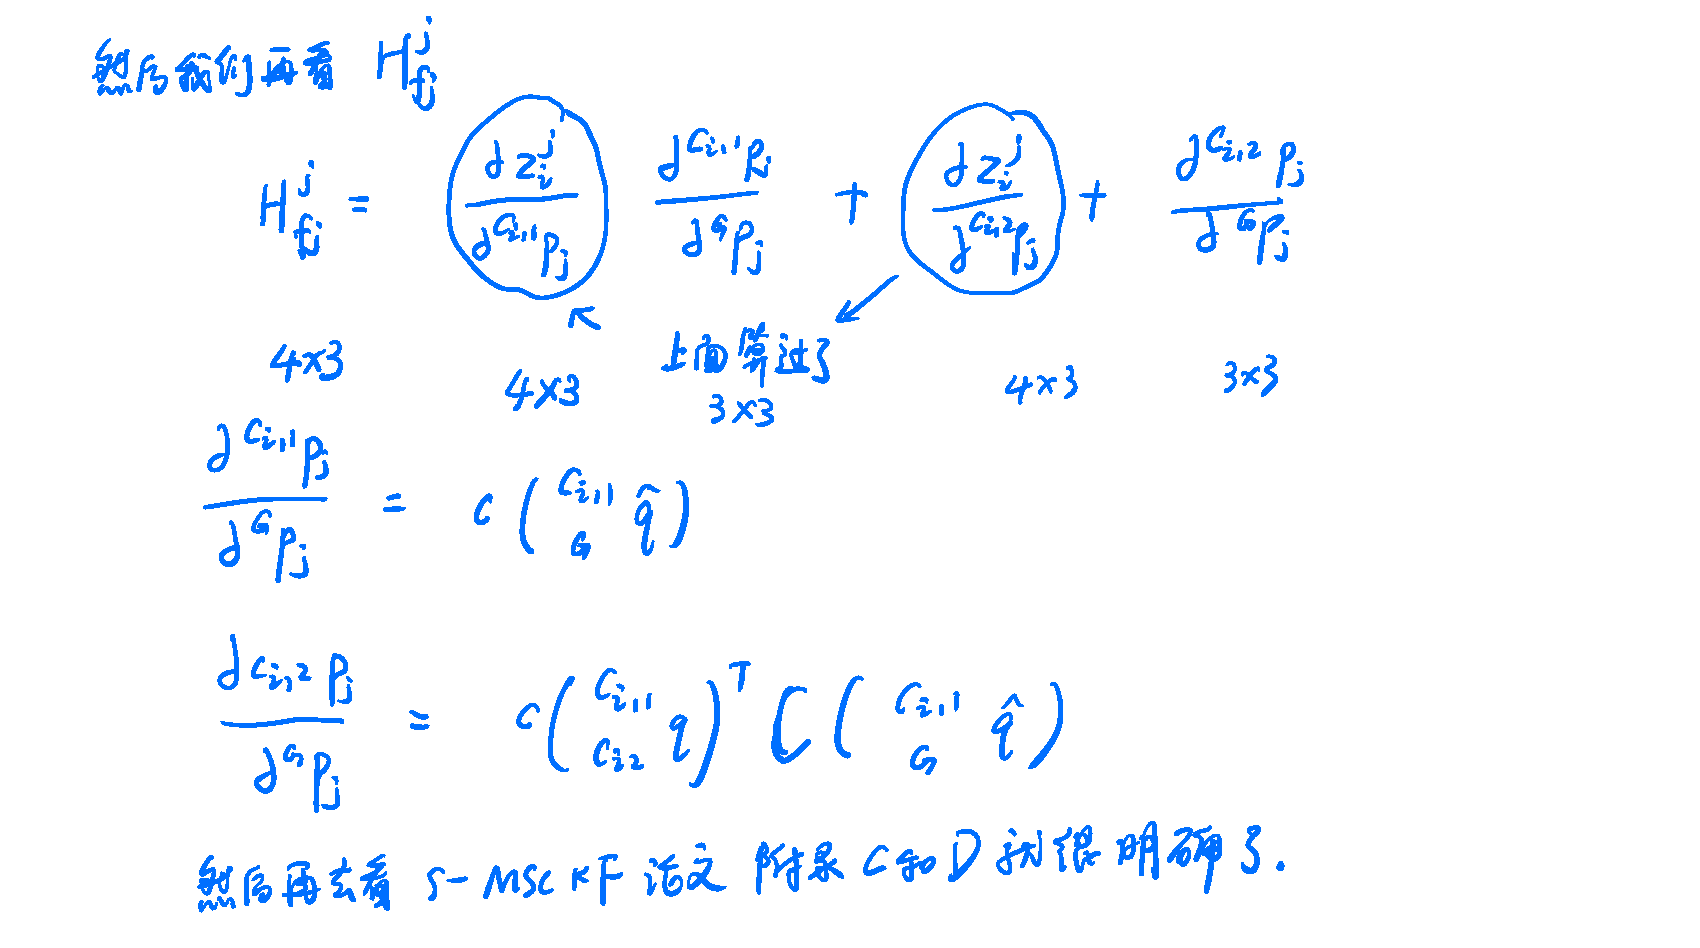 然后我们再看 H_{fj}^{j}
H_{fj}^{j} = \frac{∂z_i^j}{∂^{C_{i,1}}p_j} \frac{∂^{C_{i,1}}p_j}{∂^G p_j} + \frac{∂z_i^j}{∂^{C_{i,2}}p_j} + \frac{∂^{C_{i,2}}p_j}{∂^G p_j}
上面算过了
4×3 4×3 3×3 4×3 3×3
\frac{∂^{C_{i,1}}p_j}{∂^G p_j} = C({}^{C_{i,1}}_{G}\hat{q})
\frac{∂^{C_{i,2}}p_j}{∂^G p_j} = C({}^{C_{i,1}}_{C_{i2}}q)^T C({}^{C_{i,1}}_{G}\hat{q})
然后再去看 S-MSCKF 论文 附录 C和D 就很明确了.